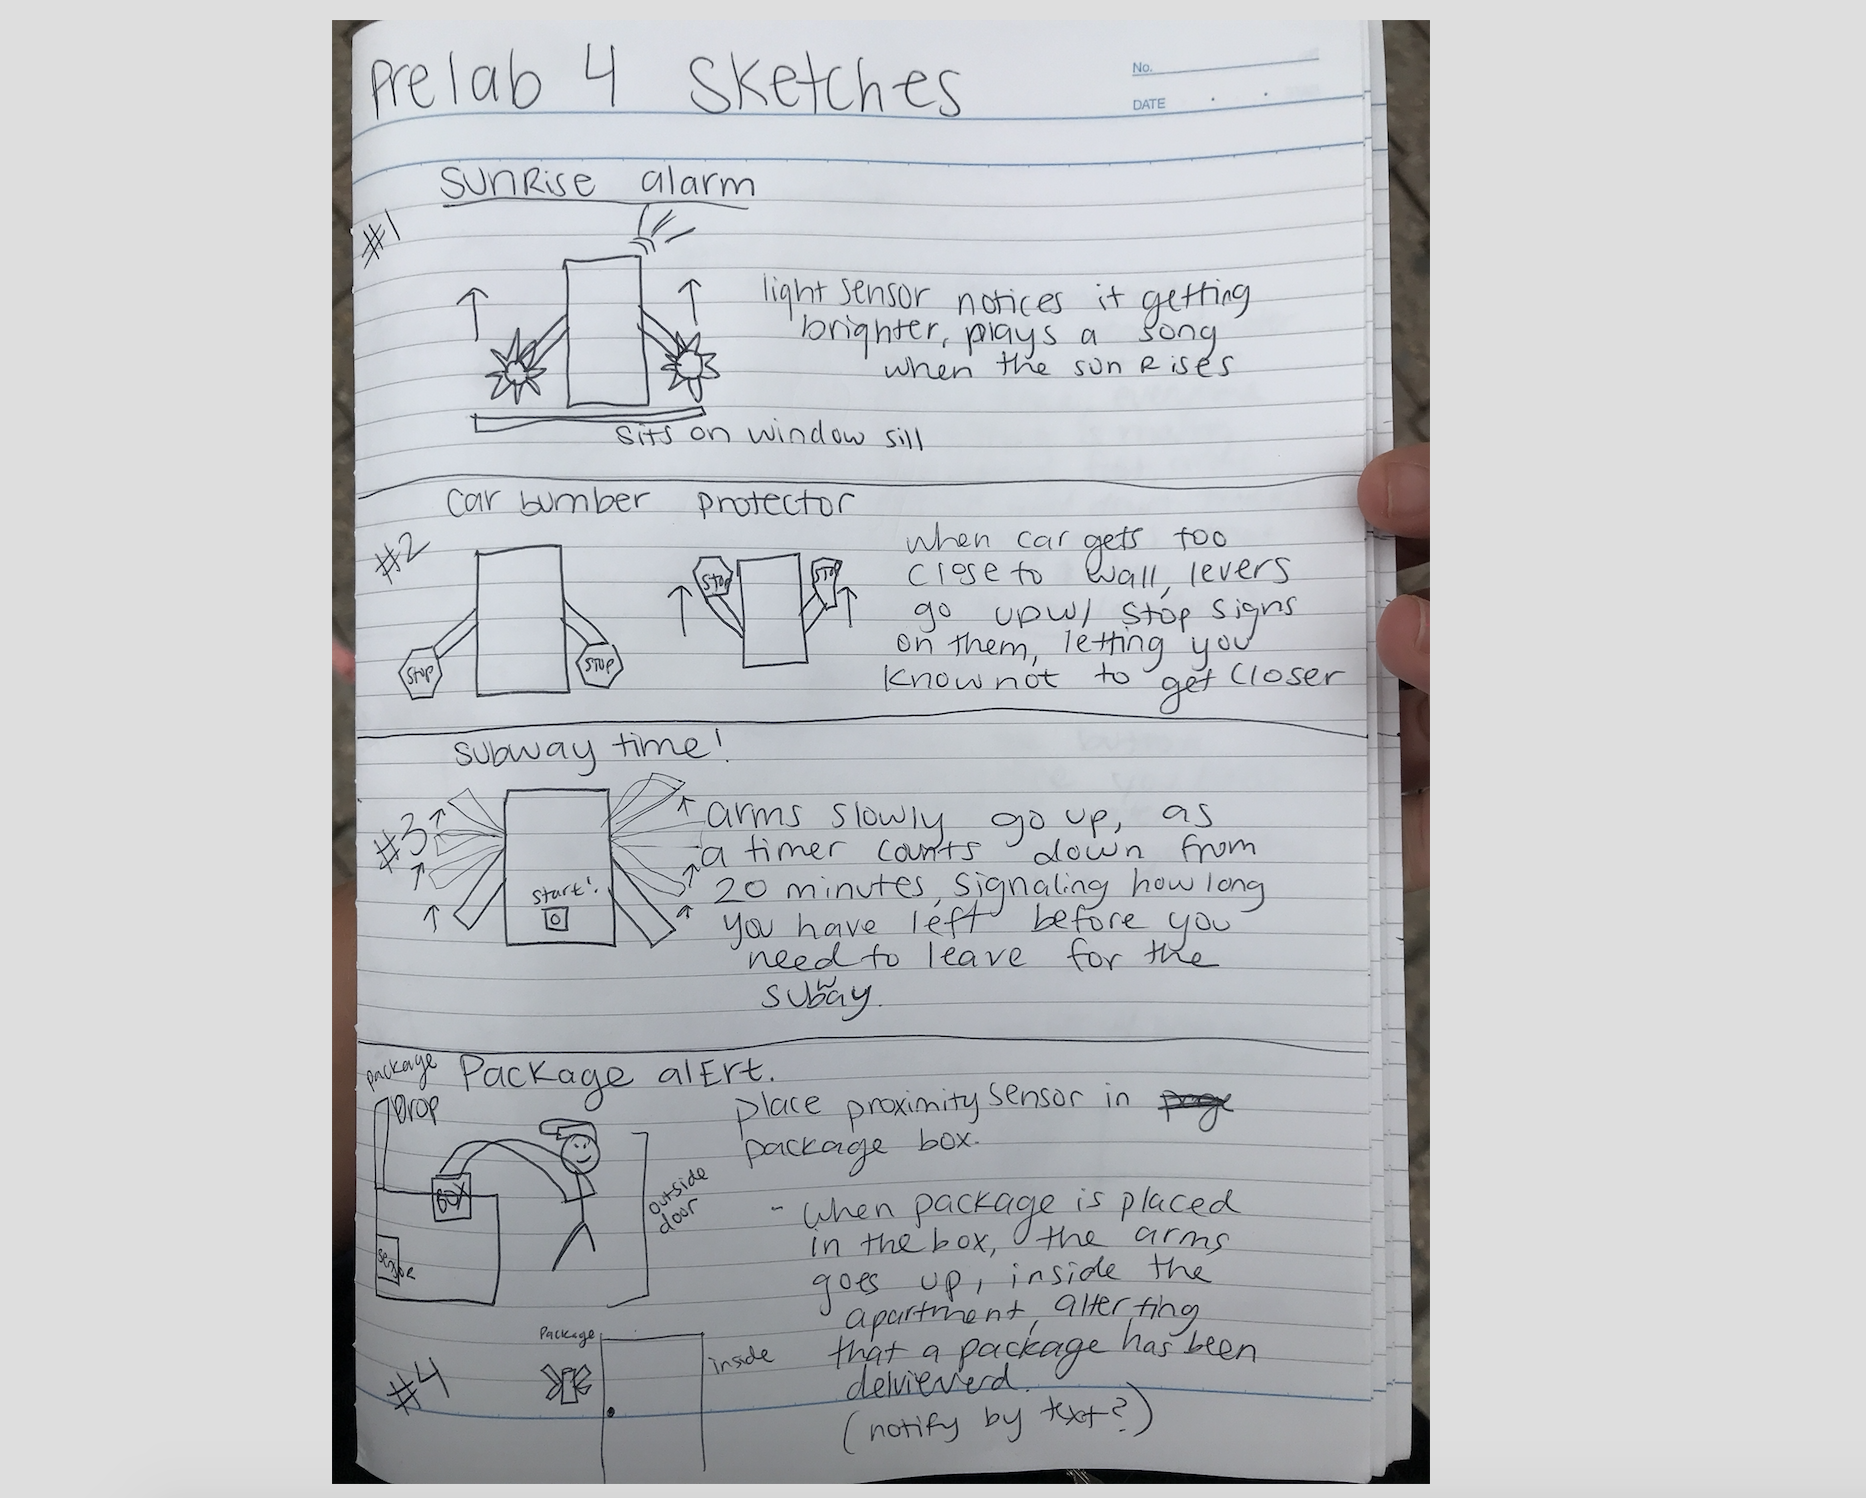 Prelab 4 Sketches
No.
DATE
sunRise alarm
#1
light sensor notices it getting
brighter, plays a song
when the sun Rises
sits on window sill
car bumber protector
#2
when car gets too
close to wall, levers
go up w/ stop signs
on them, letting you
know not to get closer
STOP
STOP
STOP
STOP
subway time!
#3
arms slowly go up, as
a timer counts down from
20 minutes, signaling how long
you have left before you
need to leave for the
subway.
start!
Package alErt.
package
Drop
BOX
sensor
outside
door
place proximity sensor in
package box.
- when package is placed
in the box, the arms
goes up, inside the
apartment, alterting
that a package has been
delvieverd.
(notify by text?)
Package
inside
#4